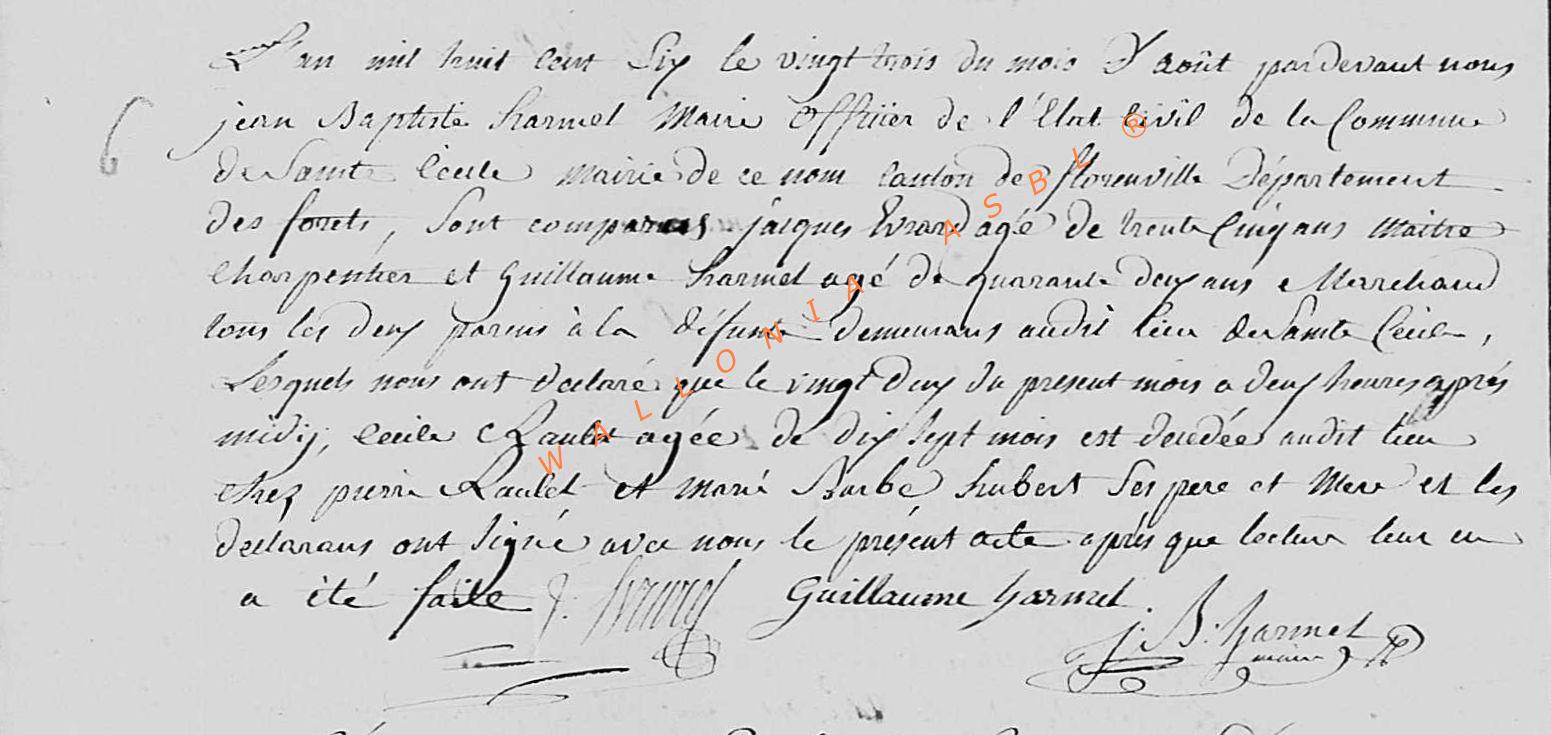 L'an mil huit cent Six le vingt trois du mois d'août pardevant nous
6
jean Baptiste harmel Maire Officier de l'Etat Civil de la Commune
de Sainte Cécile Mairie de ce nom Canton de florenville Département
des forets, Sont comparus jacques Evrard agé de trente Cinq ans Maitre
Charpentier et Guillaume harmel agé de quarante deux ans Marchand
tous les deux parens à la défunte demeurans audit lieu de Sainte Cécile,
Lesquels nous ont declaré que le vingt deux du present mois a deux heures après
midij, Cecile Raulet agée de dix sept mois est decedée audit lieu
chez pierre Raulet et Marie Barbe hubert Ses pere et Mere et les
declarans ont Signé avec nous le présent acte après que lecture leur en
a été faite J: Evrard Guillaume harmel
J: B: harmel
maire
WALLONIA ASBL ®